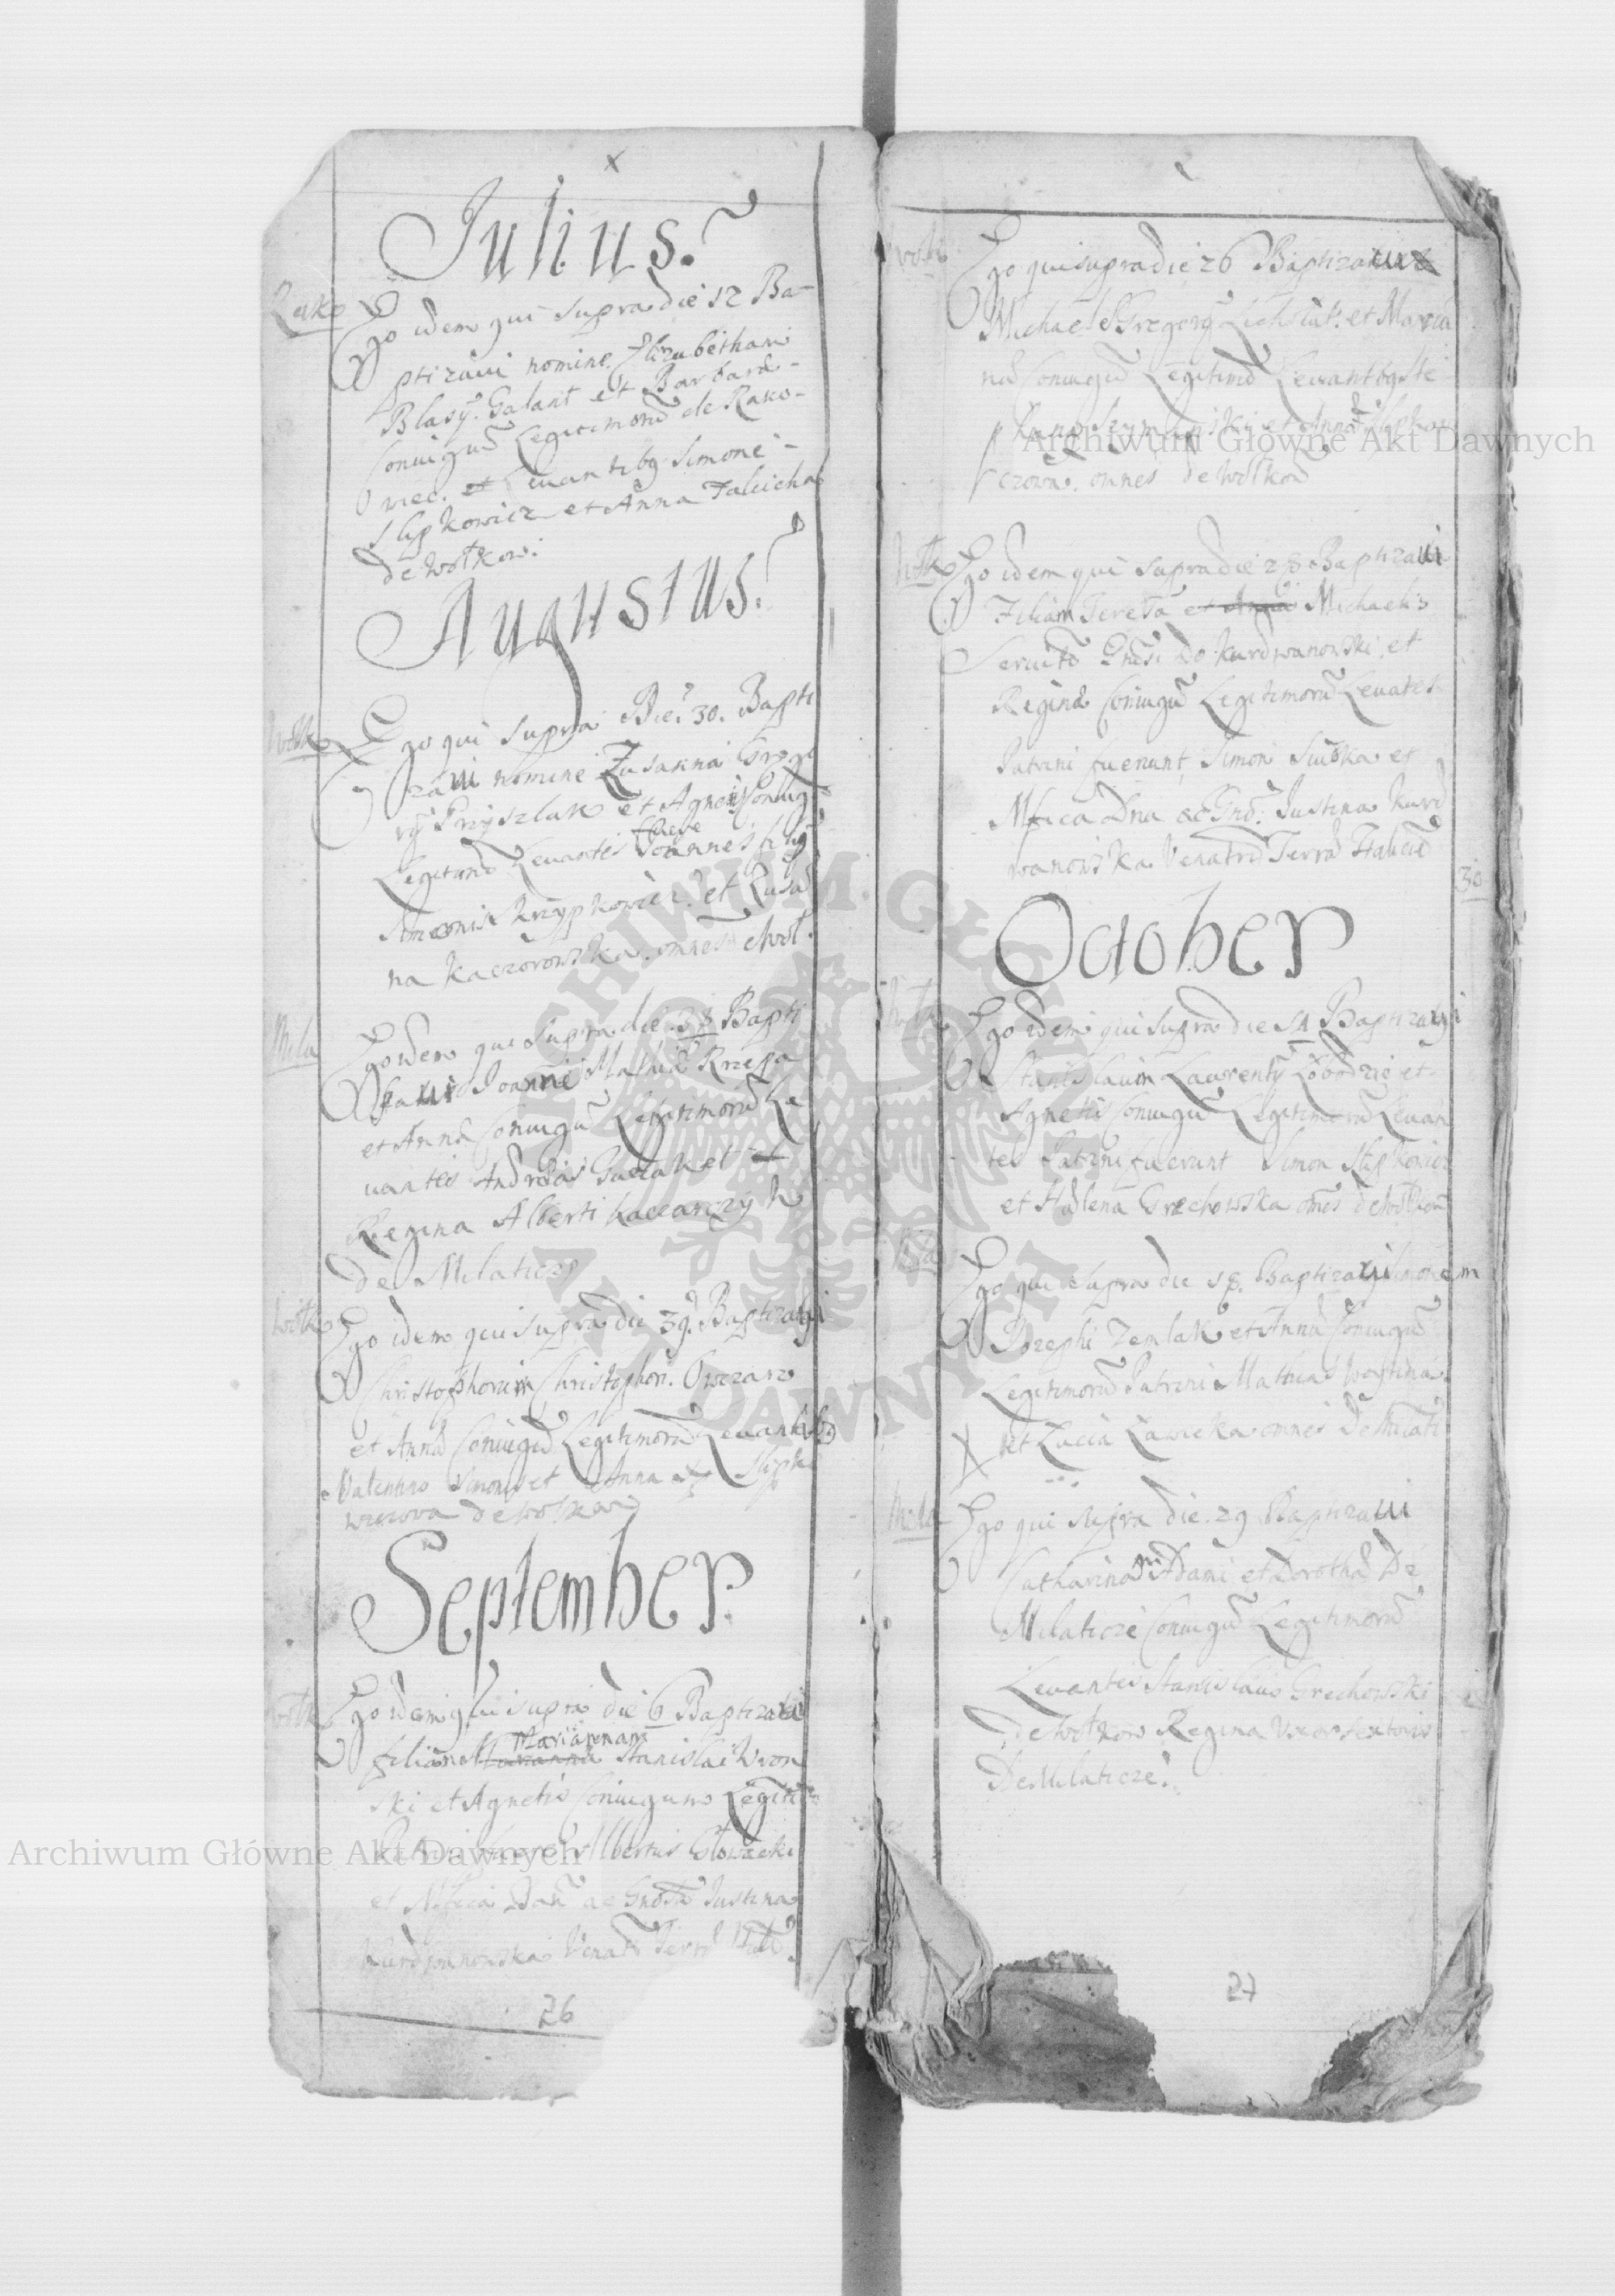 x
Julius.
Rako
Ego idem qui supra die 12 Ba-
ptizavi nomine Elizabetham
Blasÿ Galant et Barbara-
Coniugũ Legitimorũ de Rako-
wiec. et Levantibg Simone-
Slipkowicz et Anna Falicicha
de Wołkow:
Augustus.
Wołk
Ego qui supra Die 30. Bapti
zaui nomine Zusanna Grego
rÿ Przyszlak et Agnetis Coniug
Legitimo Levantes Joannes filÿ
Simeonis Krzypkowicz et Zusa
na Kaczorowska omnes de Woł.
Mila
Ego idem qui supra die 38 Bapti
zaui Joanne Mathiæ Krzepa
et Annæ Coniugũ Legitimorũ Le
uantes Andreas Guzak et
Regina Alberti Kaczarczyk
de Milaticze
Wołk
Ego idem qui supra die 39. Baptizaui
Christophorum Christophori Owczarz
et Annæ Coniugũ Legitimorũ Levantibg
Valentino Simonis et Anna Slipko
wiczowa de Wołkow
September.
Wołk
Ego idem qui supra die 6 Baptizaui
Mariannam
filiam Stanislai Wron
ski et Agnetis Coniugum Legiti
Patrini fuere Albertus Głowacki
et Mfica Dna ac Gnosa Justina
Kurdwanowska Venat Terræ Hali
26
Wołk
Ego qui supra die 26 Baptizaui
Michaele Gregorÿ Lichslut: et Maria
næ Coniugũ Legitimõ Levantbg Ste
phano Szymanski et Anna Slipkow
czowa. omnes de Wołkow
Wołk
Ego idem qui supra die 28 Baptizaui
Filiam Teresã et Anna Michaelis
Servito Gnosi Do Kurdwanowski et
Reginæ Coniugũ Legitimorũ Levates
Patrini fuerunt Simon Siuska et
Mfica Dna ac Gnõ: Justina Kurd
wanowska Venatrix Terræ Haliciẽ
30
October
Wołk
Ego idem qui supra die 14 Baptizaui
Stanislaum Laurentÿ Łobodzic et
Agnetis Coniugũ Legitimorũ Levan
tes Patrini fuerunt Simon Slipkowicz
et Hælena Grechowska oms de Wołkow
Mila
Ego qui supra die 18. Baptizaui Simonem
Josephi Zemlak et Annæ Coniugũ
Legitimorũ Patrini Mathias Woytina
et Lucia Ławicka omnes De Milati
Mila
Ego qui supra die 29 Baptizaui
Catharinam Adami et Dorothæ De
Milaticze Coniugũ Legitimorũ
Levantes Stanislaus Grechowski
de Wołkow Regina Uxor textoris
De Milaticze.
27
Archiwum Główne Akt Dawnych
Archiwum Główne Akt Dawnych
ARCHIWUM GŁÓWNE AKT DAWNYCH